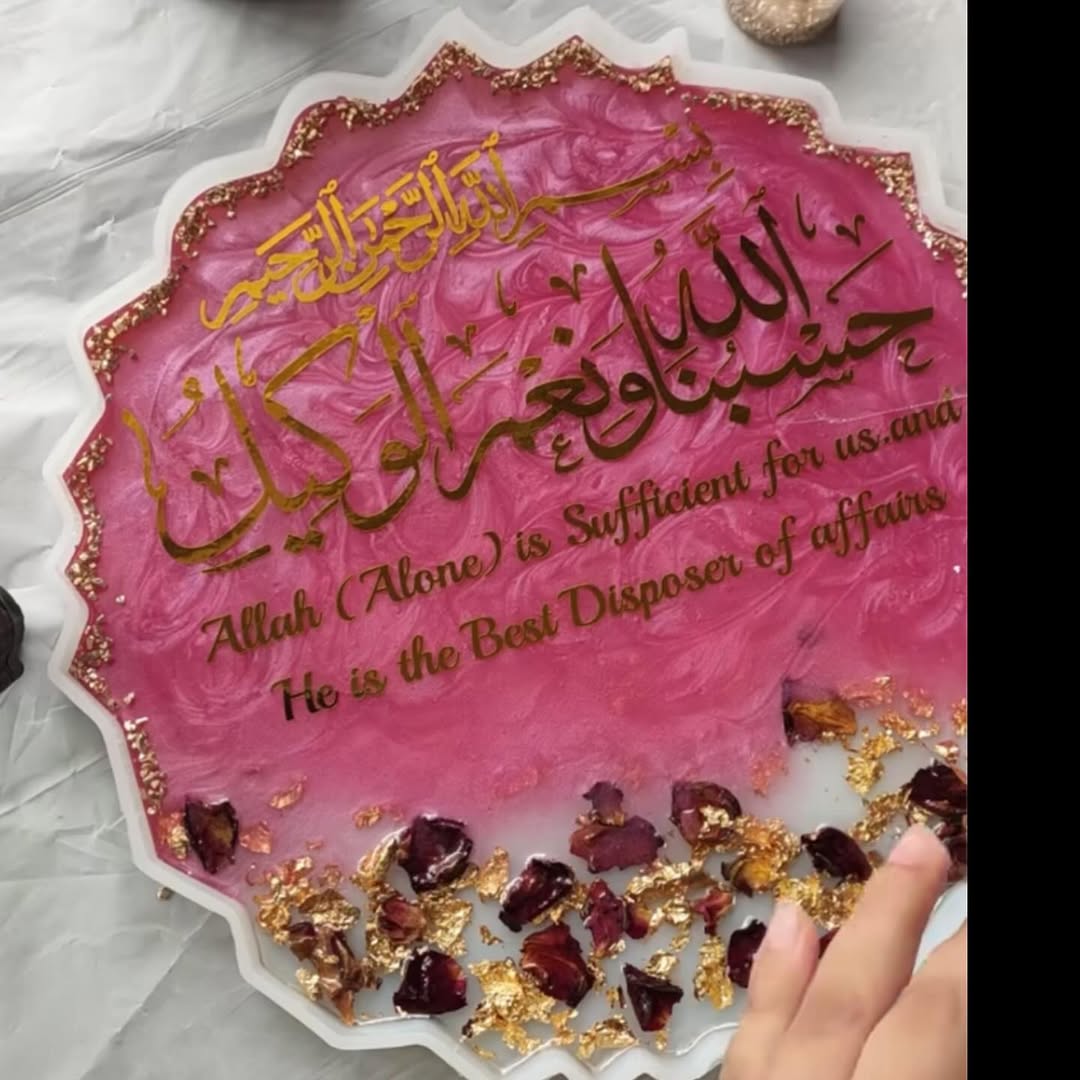 بِسْمِ ٱللَّهِ ٱلرَّحْمَٰنِ ٱلرَّحِيمِ
حَسْبُنَا اللَّهُ وَنِعْمَ الْوَكِيلُ
Allah (Alone) is Sufficient for us.and
He is the Best Disposer of affairs